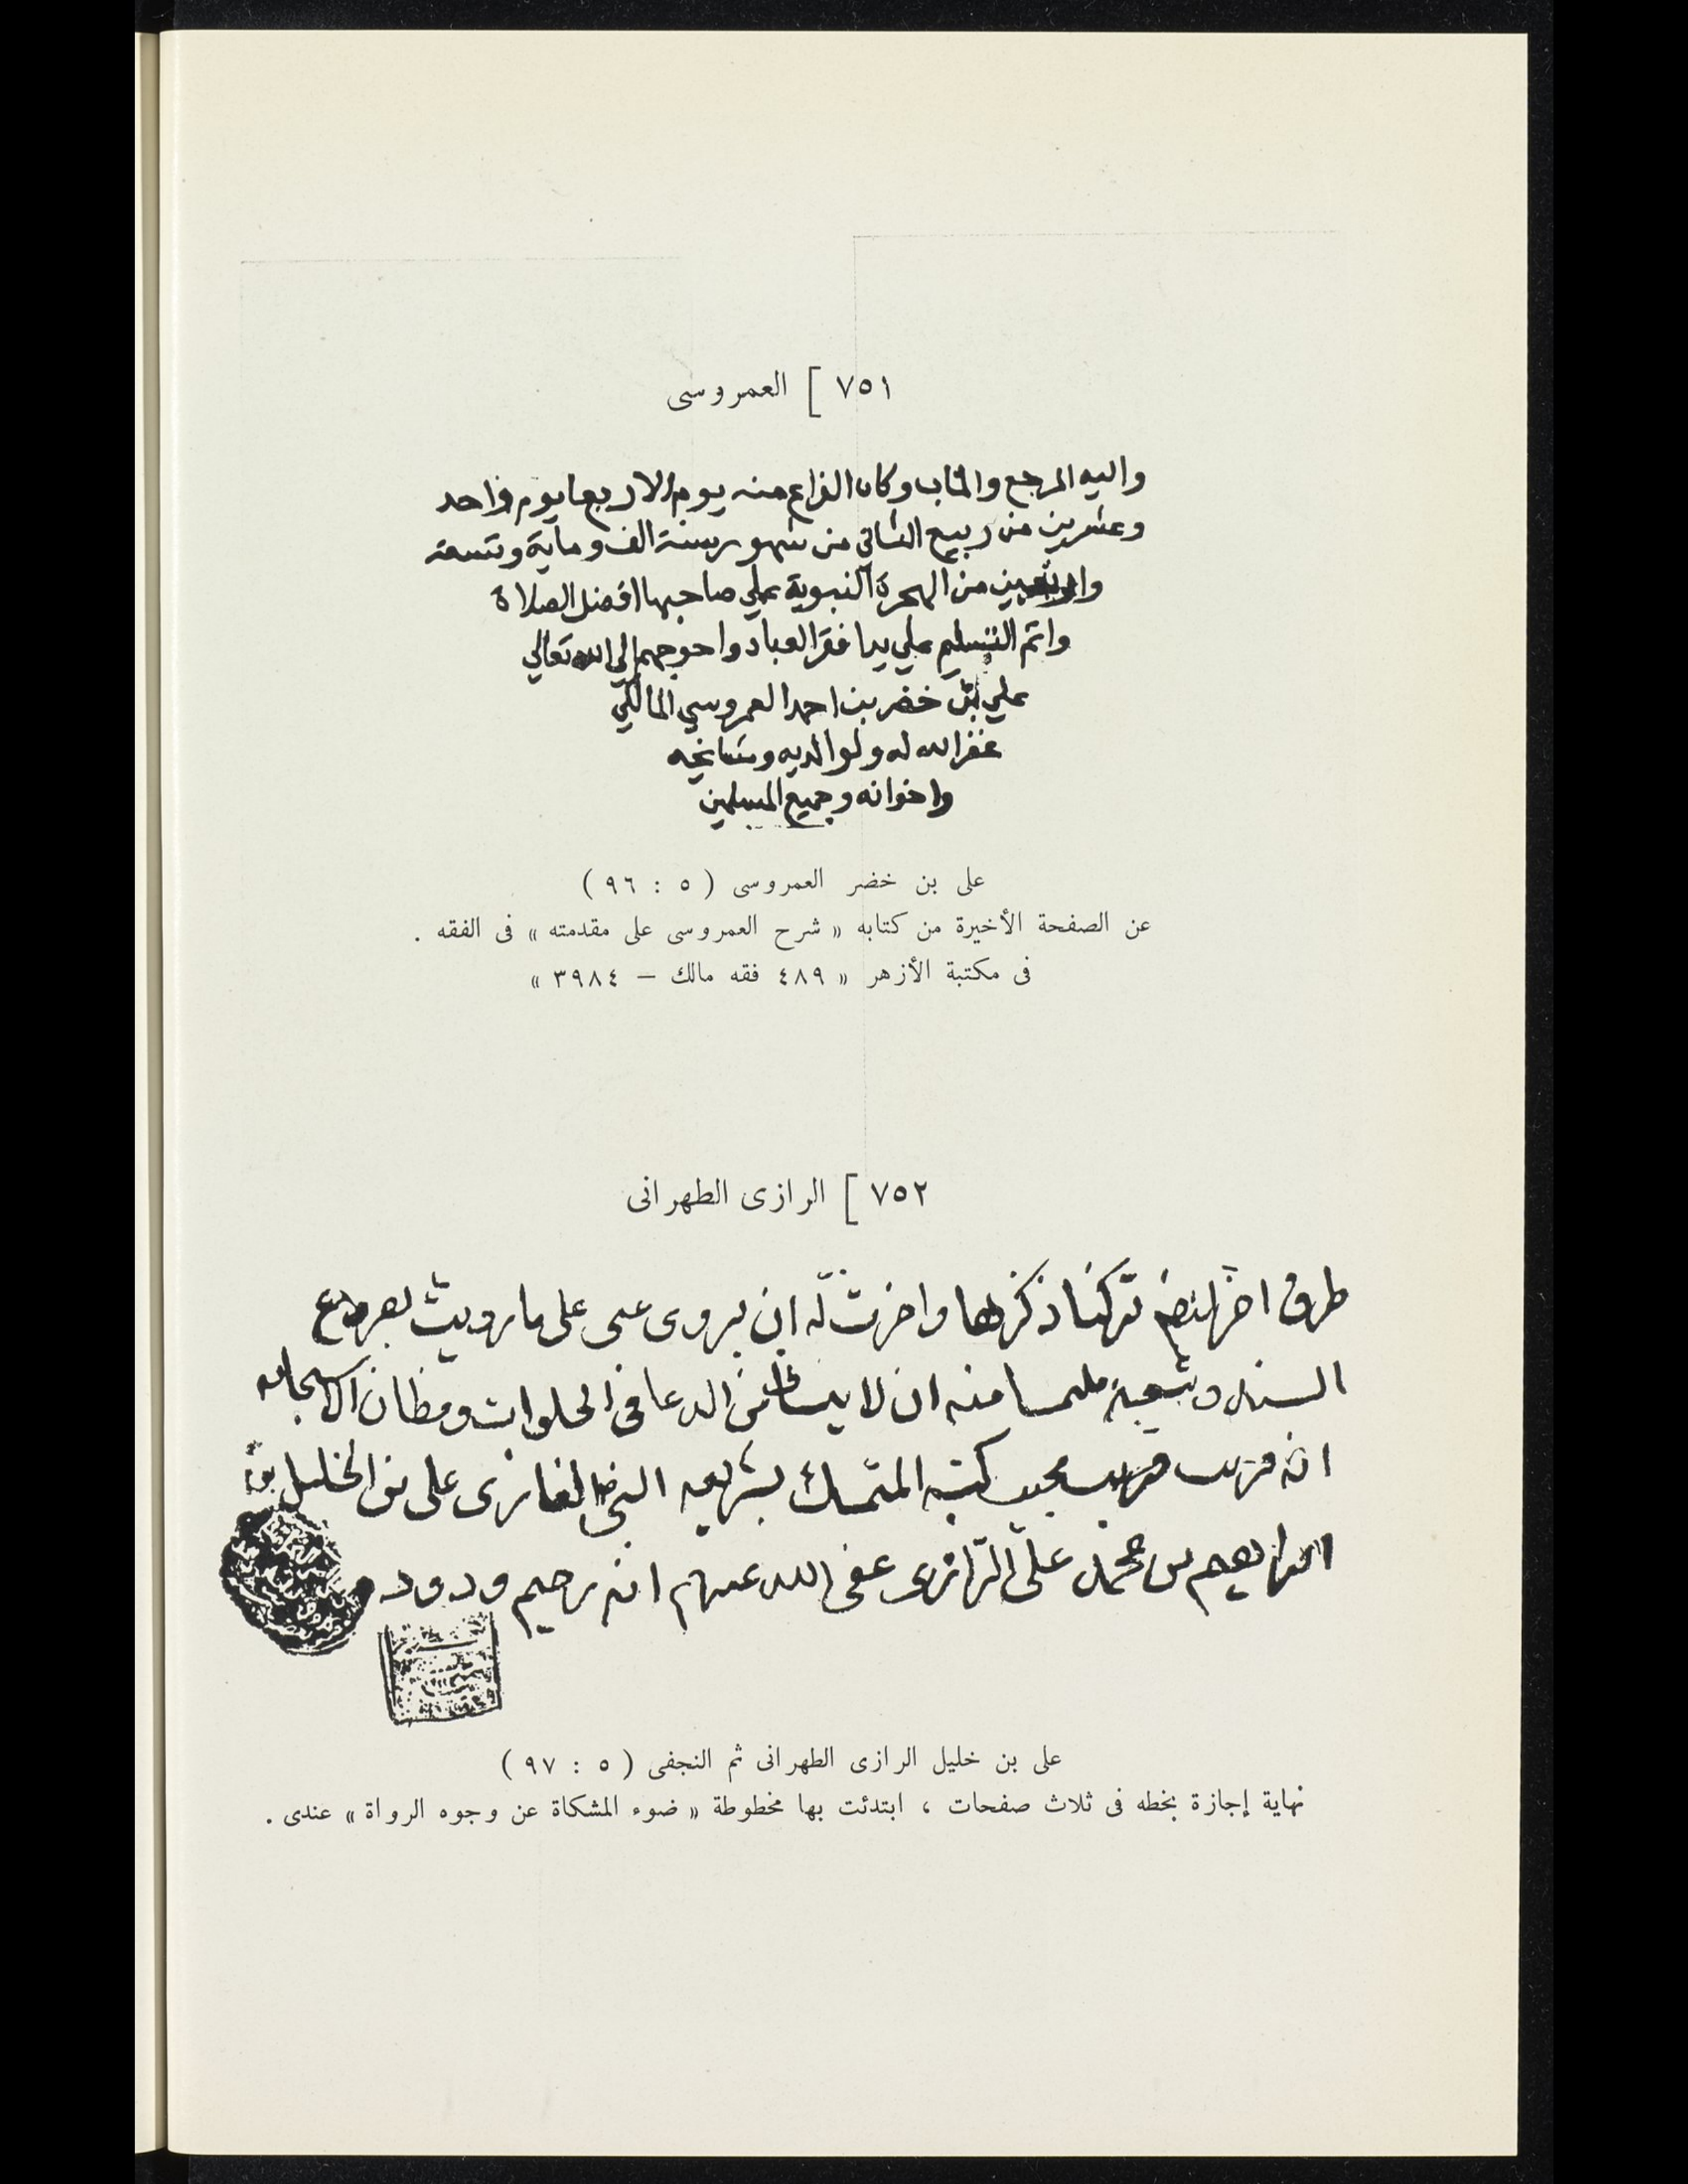 ٧٥١ [ العمروسى
واليه المرجع والماب وكان الفراغ منه يوم الاربعا يوم واحد
وعشرين من ربيع الثاني من شهور سنة الف وماية وتسعة
واربعين من الهجرة النبوية علي صاحبها افضل الصلاة
واتم التسليم علي يد افقر العباد واحوجهم الي الله تعالي
علي بن خضر بن احمد العمروسي المالكي
غفر الله له ولوالديه ومشايخه
واخوانه وجميع المسلمين
على بن خضر العمروسى ( ٥ : ٩٦ )
عن الصفحة الأخيرة من كتابه « شرح العمروسى على مقدمته » فى الفقه .
فى مكتبة الأزهر « ٤٨٩ فقه مالك – ٣٩٨٤ »
٧٥٢ [ الرازى الطهرانى
طرق اخر تركنا ذكرها واجزت له ان يروى عنى على ما رويت
السند ملتمسا منه ان لا ينسانى من الدعا فى الخلوات ومظان الاستجابه
انه قريب مجيب كتبه المتمسك بشريعه النبى الغازى على بن الخليل بن
ابراهيم بن محمد على الرازى عفى الله عنهم انه رحيم ودود
على بن خليل الرازى الطهرانى ثم النجفى ( ٥ : ٩٧ )
نهاية إجازة بخطه فى ثلاث صفحات ، ابتدئت بها مخطوطة « ضوء المشكاة عن وجوه الرواة » عندى .